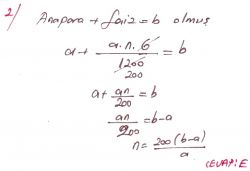 2/ Anapara + faiz = b olmuş
a + a.n.6 / 1200 = b
200
a + an/200 = b
an/200 = b-a
n = 200(b-a)/a
CEVAP: E